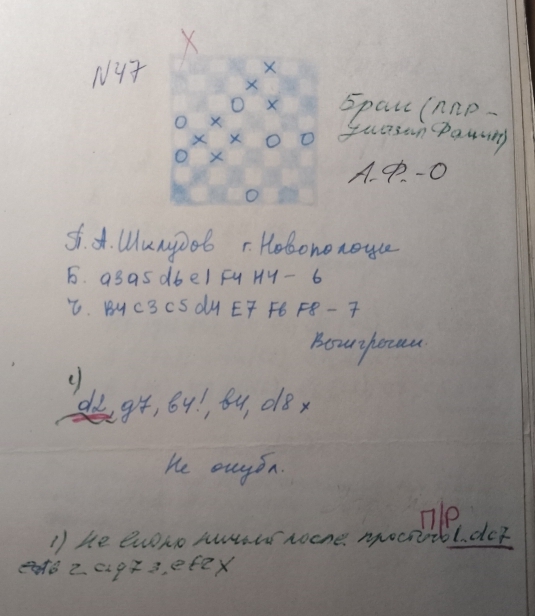 X
N47
Брак (ППР -
указал Фомин)
А.Ф.-О
П. А. Шклудов г. Новополоцк
Б. а3 а5 d6 e1 F4 H4 - 6
Ч. В4 с3 с5 d4 E7 F6 F8 - 7
Выигрыш.
1)
d2, g7, b4!, b4, d8 x
Не опубл.
П/Р
1) Не видно ничьей после простого 1. dc7
2. cg7 3. ef2 X